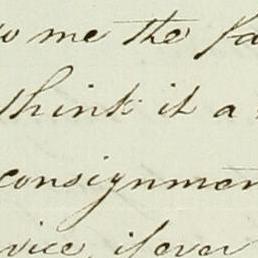 to me the fa
think it a
consignmen
vice, if ever